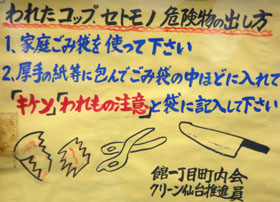 われたコップ、セトモノ危険物の出し方
1、家庭ごみ袋を使って下さい
2、厚手の紙等に包んでごみ袋の中ほどに入れて
「キケン」「われもの注意」と袋に記入して下さい
館一丁目町内会
クリーン仙台推進員